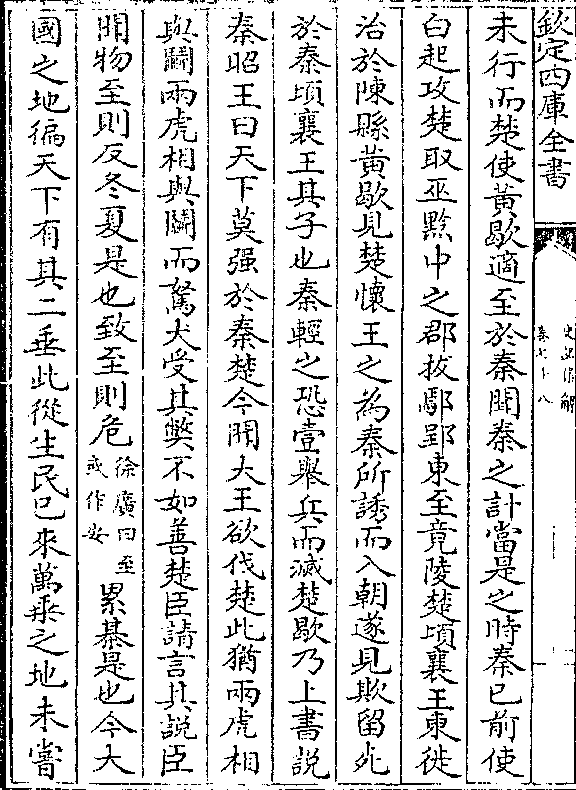 欽定四庫全書
史記集解
卷七十八
未行而楚使黃歇適至於秦聞秦之計當是之時秦已前使
白起攻楚取巫黔中之郡拔鄢郢東至竟陵楚頃襄王東徙
治於陳縣黃歇見楚懷王之為秦所誘而入朝遂見欺留死
於秦頃襄王其子也秦輕之恐壹舉兵而滅楚歇乃上書説
秦昭王曰天下莫强於秦楚今聞大王欲伐楚此猶兩虎相
與鬭兩虎相與鬭而駑犬受其獘不如善楚臣請言其説臣
聞物至則反冬夏是也致至則危徐廣曰至或作安累棊是也今大
國之地徧天下有其二垂此從生民已來萬乘之地未嘗